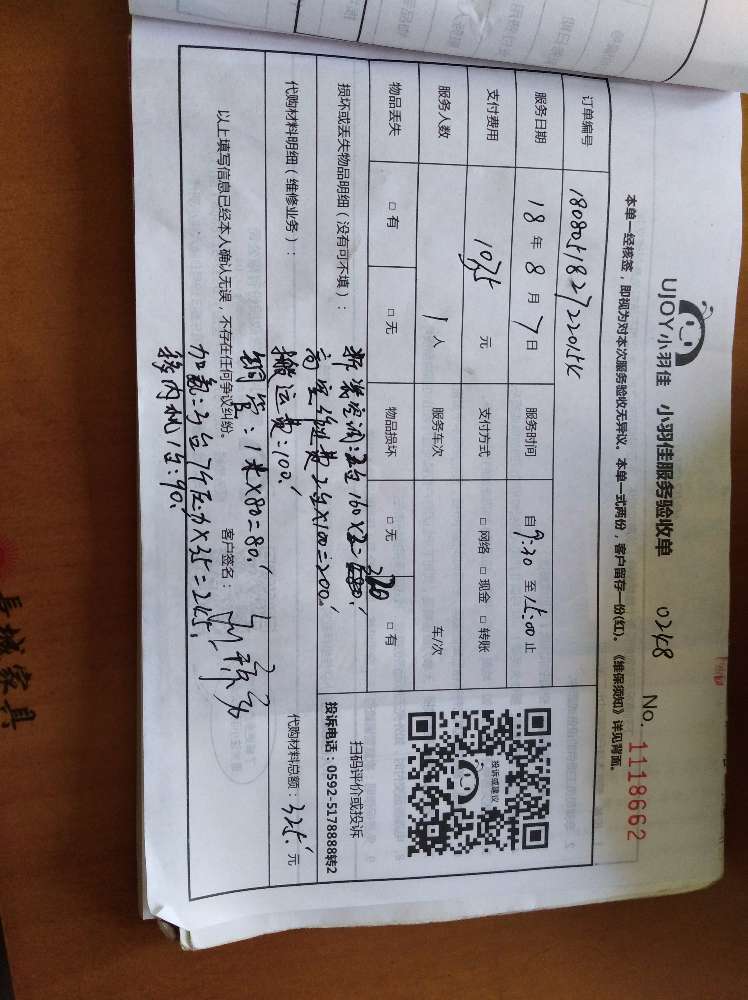 UJOY小羽佳 小羽佳服务验收单 0248 No. 1118662
本单一经核签，即视为对本次服务验收无异议。本单一式两份，客户留存一份(红)。《维保须知》详见背面。
订单编号
服务日期 18 年 8 月 7 日 服务时间 自 9:30 至 15:00 止
支付费用 1075 元 支付方式 □ 网络 □ 现金 □ 转账
服务人数 1 人 服务车次 车/次
物品丢失 □ 有 □ 无 物品损坏 □ 无 □ 有
投诉或建议
扫码评价或投诉
投诉电话：0592-5178888转2
损坏或丢失物品明细（没有可不填）：
拆装空调：2台 160×2=320
高空作业费 2台×100=200.
搬运费：100.
代购材料明细（维修业务）：
铜管：1米×80=80.
加氟：3台 7个压力×35=245.
移内机1台：90.
代购材料总额：325. 元
以上填写信息已经本人确认无误，不存在任何争议纠纷。
客户签名：
长城家具